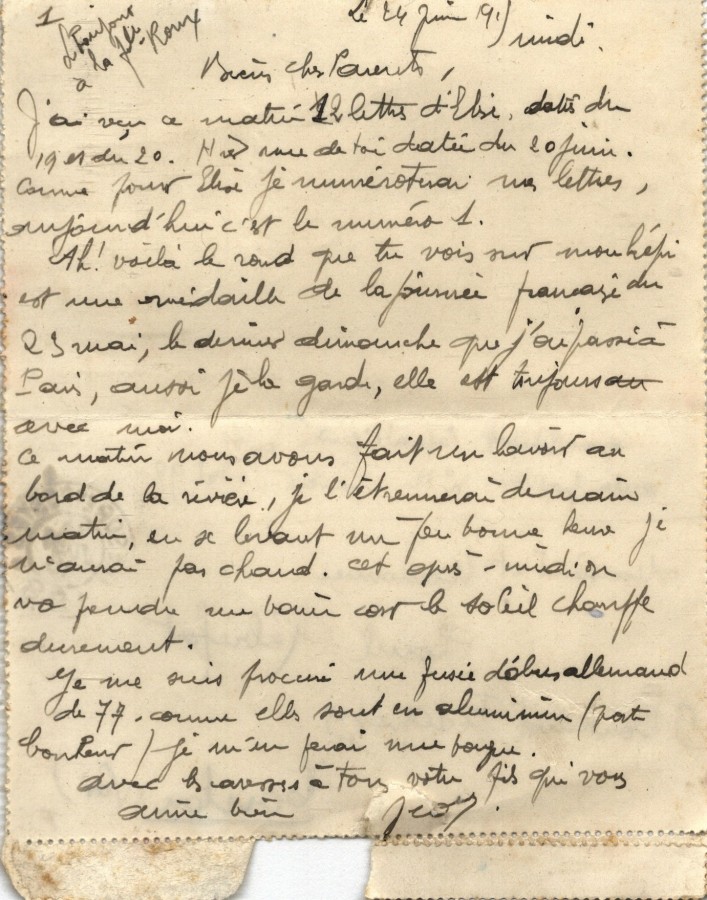 1
le Bonjour
à la fille
à Roux
Le 24 Juin 191
midi.
Biens chers Parents,
J'ai reçu ce matin 2 lettres d'Elise, datés du
19 et du 20. Hier une de toi datée du 20 juin.
Comme pour Elise je numéroterai mes lettres,
aujourd'hui c'est le numéro 1.
Ah! voilà le rond que tu vois sur mon képi
est une médaille de la Journée française du
23 mai, le dernier dimanche que j'ai passé à
Paris, aussi je la garde, elle est toujours au
avec moi.
Ce matin nous avons fait un lavoir au
bord de la rivière, je l'étrennerai demain
matin, en se levant un peu bonne heure je
n'aurai pas chaud. Cet après-midi on
va prendre un bain car le soleil chauffe
durement.
Je me suis procuré une fusée d'obus allemand
de 77. comme elles sont en aluminium (porte
bonheur) je m'en ferai une bague.
avec les à tous votre fils qui vous
aime bien